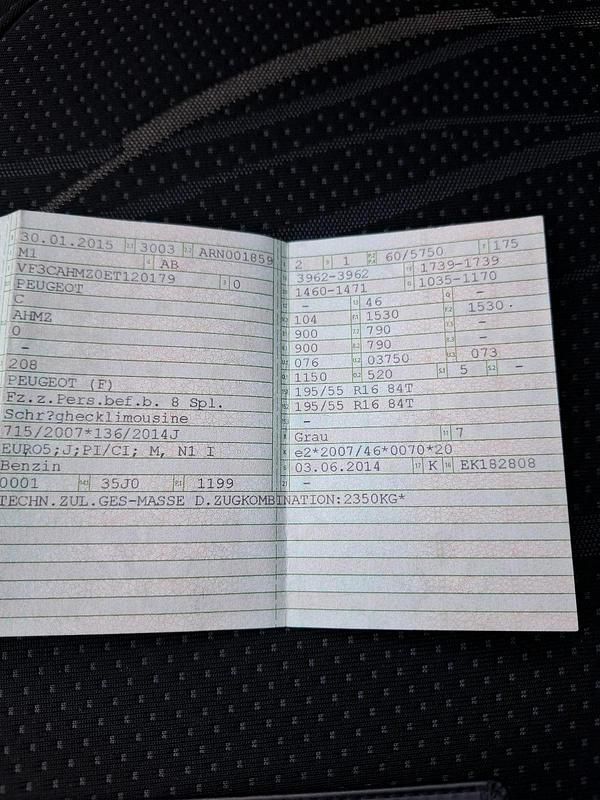 30.01.2015 3003 ARN001859
M1 AB
VF3CAHMZ0ET120179 0
PEUGEOT
C
AHMZ
0
-
208
PEUGEOT (F)
Fz.z.Pers.bef.b. 8 Spl.
Schr?ghecklimousine
715/2007*136/2014J
EURO5;J;PI/CI; M, N1 I
Benzin
0001 35J0 1199
TECHN.ZUL.GES-MASSE D.ZUGKOMBINATION:2350KG*
2 1 60/5750 175
3962-3962 1739-1739
1460-1471 1035-1170
- 46 -
104 1530 1530
900 790 -
900 790 -
076 03750 073
1150 520 5 -
195/55 R16 84T
195/55 R16 84T
-
Grau 7
e2*2007/46*0070*20
03.06.2014 K EK182808
-